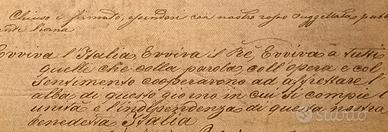 Chiuso e firmato, essendosi con nostro
Evviva l'Italia, Evviva il Rè, Evviva a tutti
quelli che colla parola, coll'opera e col
sentimento cooperarono ad affrettare
alba di questo giorno in cui si compie l'
unità e l'indipendenza di questa nostra
benedetta Italia
subito